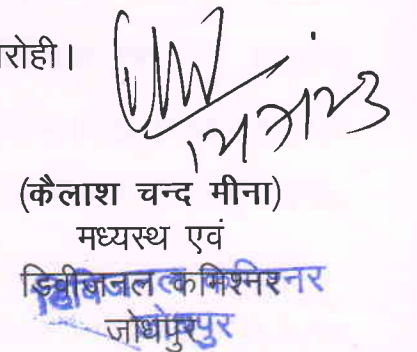 रोही।
(कैलाश चन्द मीना)
मध्यस्थ एवं
डिवीजनल कमिश्नर
जोधपुर